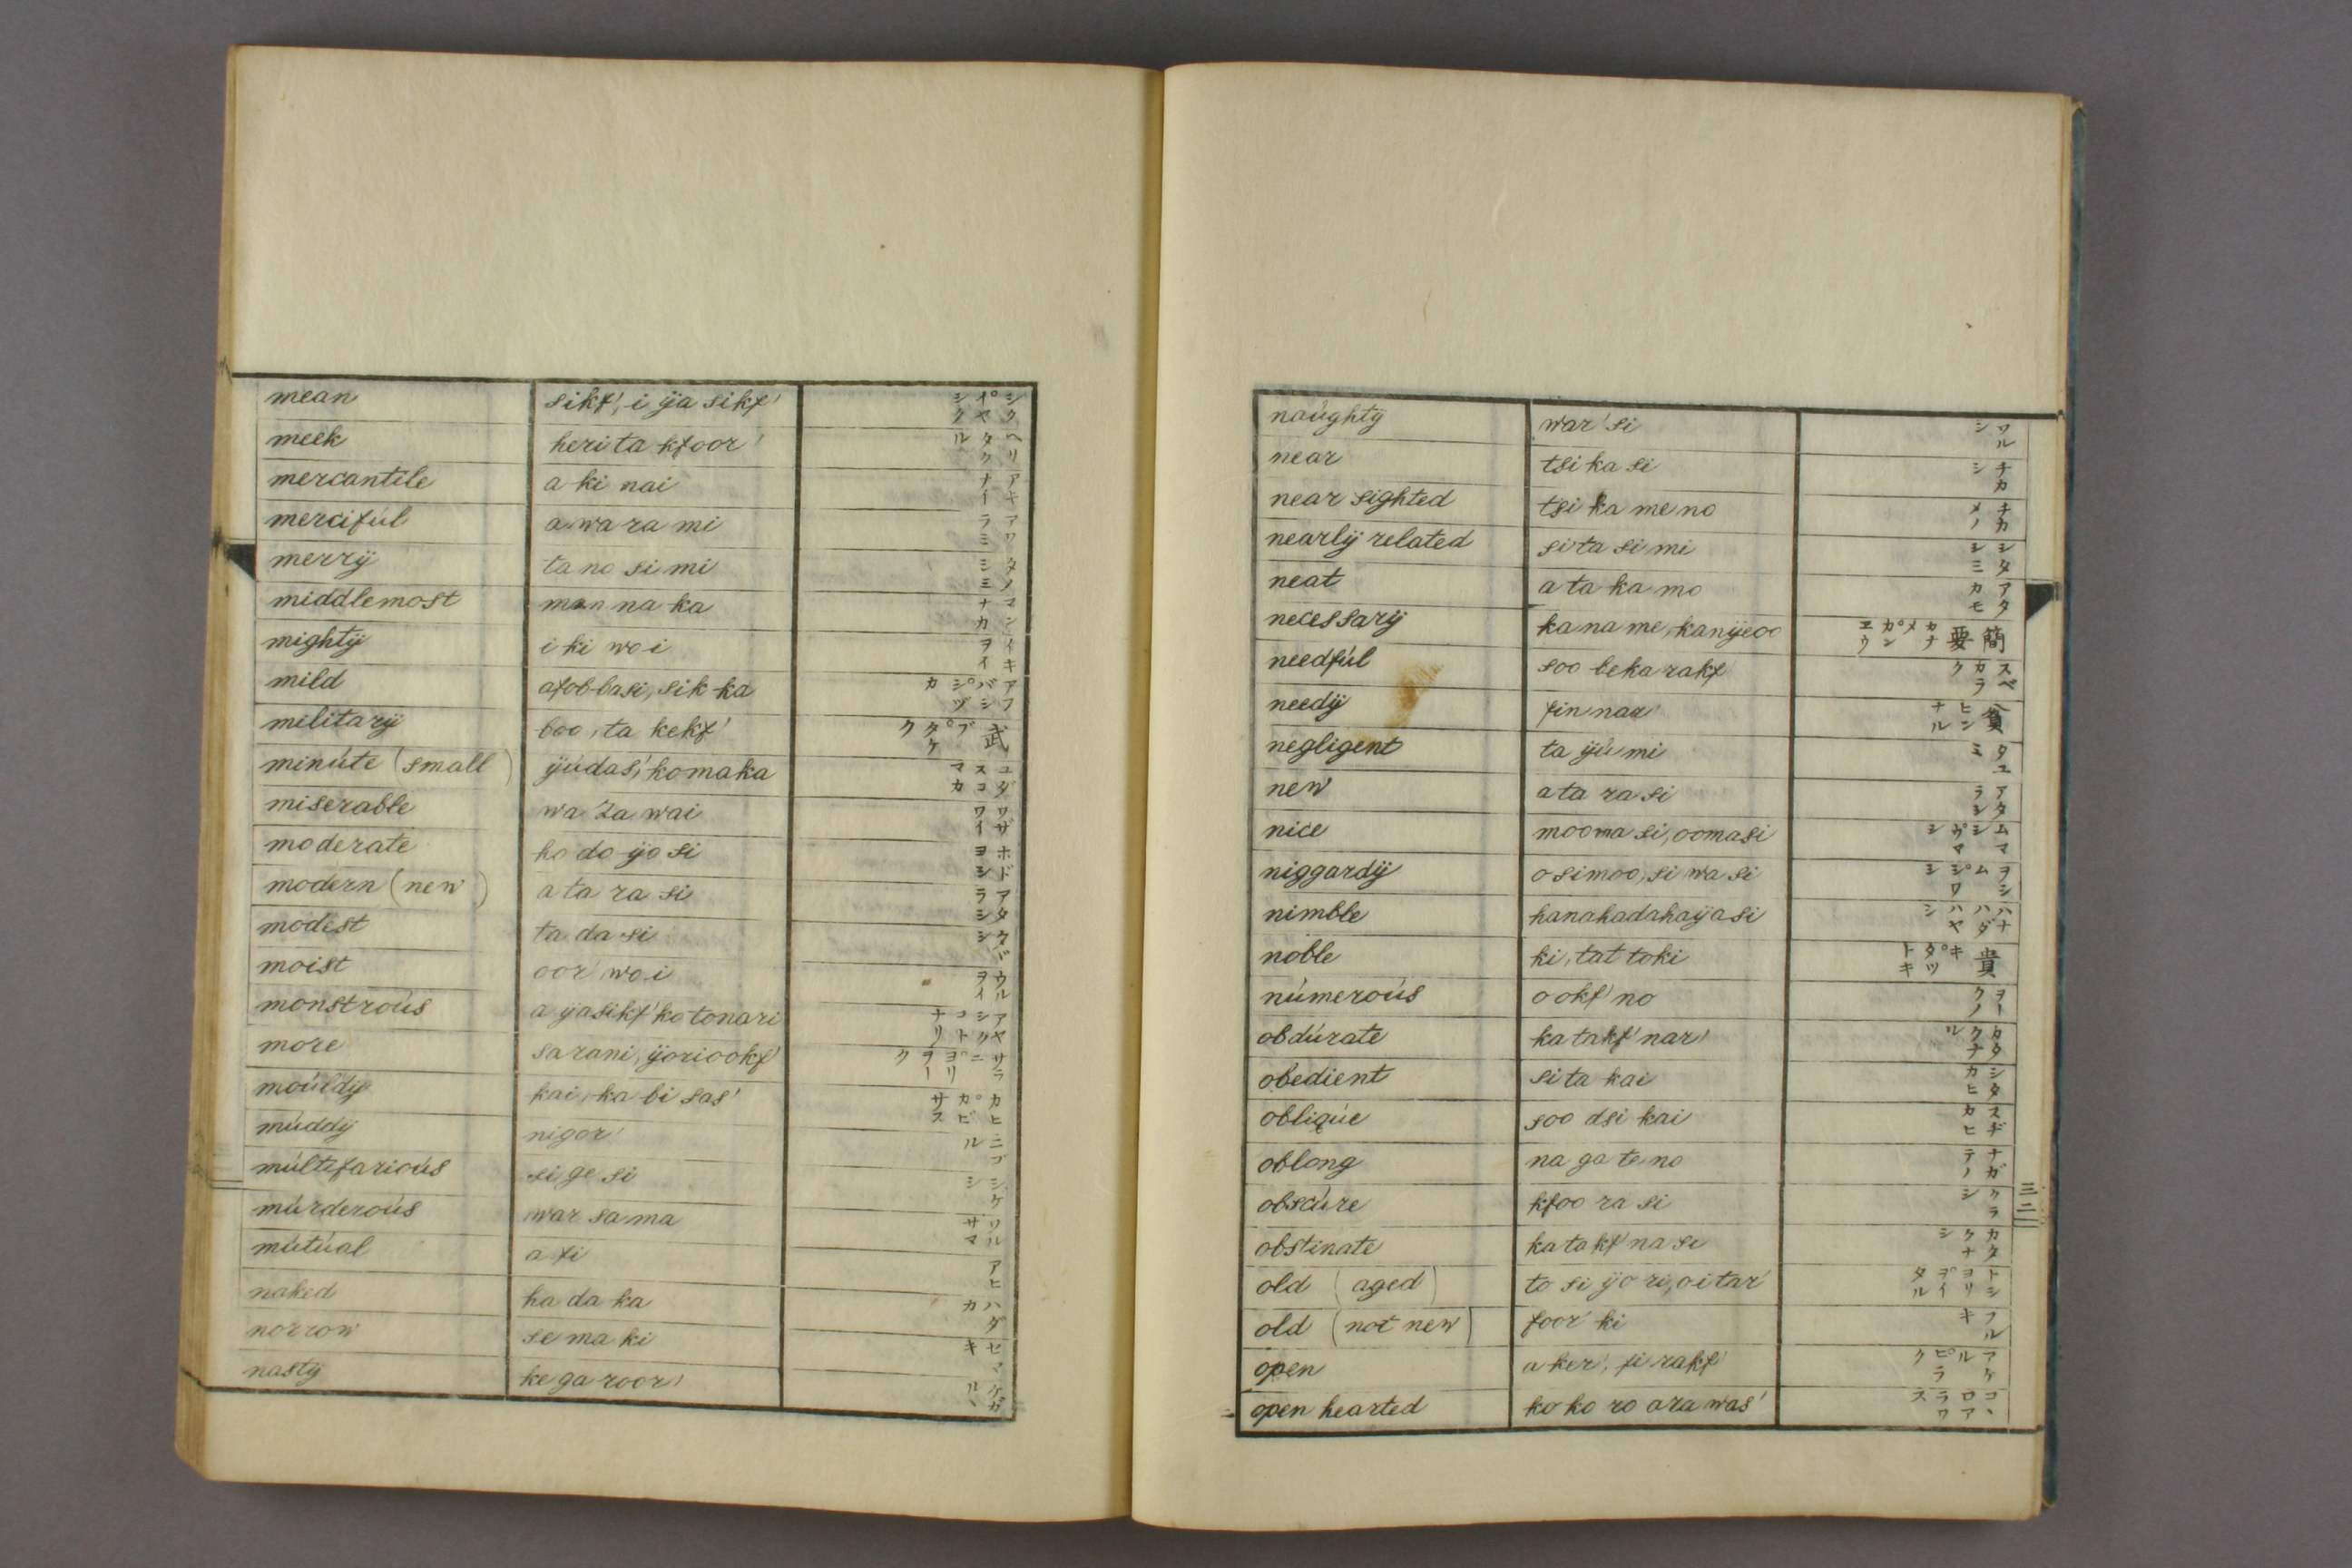 mean sikf', i ÿa sikf' シク゜イヤシク
meek heri ta kfoor' ヘリタクル
mercantile a ki nai アキナイ
merciful a wa ra mi アワラミ
merrÿ ta no si mi タノシミ
middlemost man na ka マンナカ
mightÿ i ki wo i イキヲイ
mild afob-basi, sik-ka アフバシ゜シヅカ
militarÿ boo, ta kekf' 武 ブ゜タケク
minúte (small) ÿúdas', komaka ユダスコマカ
miserable wa za wai ワザワイ
moderate ho do ÿo si ホドヨシ
modern (new) a ta ra si アタラシ
modest ta da si タヾシ
moist oor' wo i ウルヲイ
monstroús a ÿasikf' ko tonari アヤシクコトナリ
more sarani, ÿoriookf' サラニ゜ヨリヲーク
moúldÿ kai, ka bi sas' カヒ゜カビサス
múddÿ nigor' ニゴル
múltifarioús si ge si シゲシ
múrderoús war sa ma ワルサマ
mútúal a fi アヒ
naked ha da ka ハダカ
norrow se ma ki セマキ
nastÿ ke ga roor' ケガルヽ
naúghtÿ war' si ワルシ
near tsi ka si チカシ
near sighted tsi ka me no チカメノ
nearlÿ related si ta si mi シタシミ
neat a ta ka mo アタカモ
necessarÿ ka na me, kanÿeoo 簡要 カナメ゜カンエウ
needfúl soo beka rakf' スベカラク
needÿ fin nar' 貧 ヒンナル
negligent ta ÿú mi タユミ
new a ta ra si アタラシ
nice mooma si, oomasi ムマシ゜ウマシ
niggardÿ o simoo, si wa si ヲシム゜シワシ
nimble hanahadahaÿasi ハナハダハヤシ
noble ki, tat toki 貴 キ゜タツトキ
númeroús o okf' no ヲークノ
obdúrate ka takf' nar' カタクナル
obedient si ta kai シタカヒ
obliqúe soo dsi kai スヂカヒ
oblong na ga te no ナガテノ
obscúre kfoo ra si クラシ
obstinate ka ta kf' na si カタクナシ
old (aged) to si ÿo ri, oi tar' トシヨリ゜ヲイタル
old (not new) foor' ki フルキ
open a ker', fi rakf' アケル゜ヒラク
open hearted ko ko ro ara was' コヽロアラワス
三二